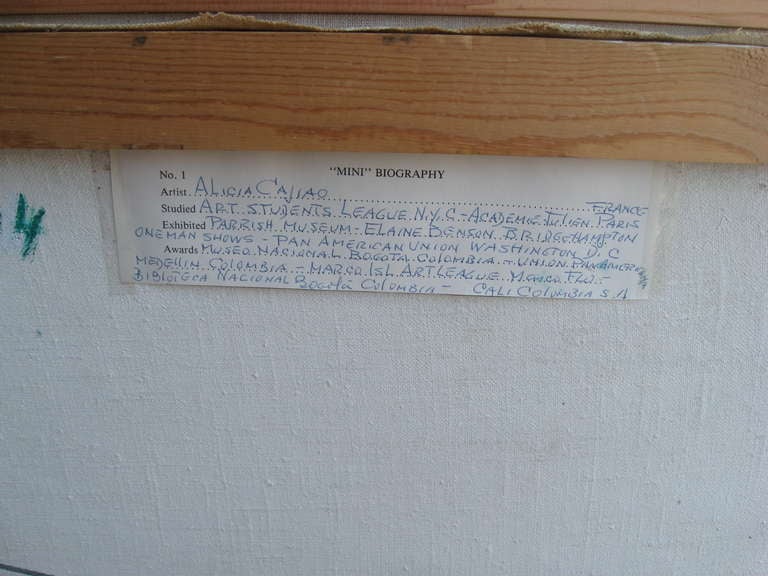 No. 1 "MINI" BIOGRAPHY
Artist. ALICIA CAJIAO
FRANCE
Studied ART. STUDENTS. LEAGUE. N.Y.C. - ACADEMIE. JULIEN. PARIS
Exhibited PARRISH. MUSEUM - ELAINE BENSON. BRIDGEHAMPTON
ONE MAN SHOWS - PAN AMERICAN UNION WASHINGTON D.C
Awards MUSEO NACIONAL BOGOTA COLOMBIA. - UNION. PANAMERICANA
MEDELLIN. COLOMBIA. - MARCO. ISL. ART. LEAGUE. MARCO. FLA. -
BIBLIOTECA NACIONAL BOGOTA COLOMBIA - CALI COLOMBIA S.A
4